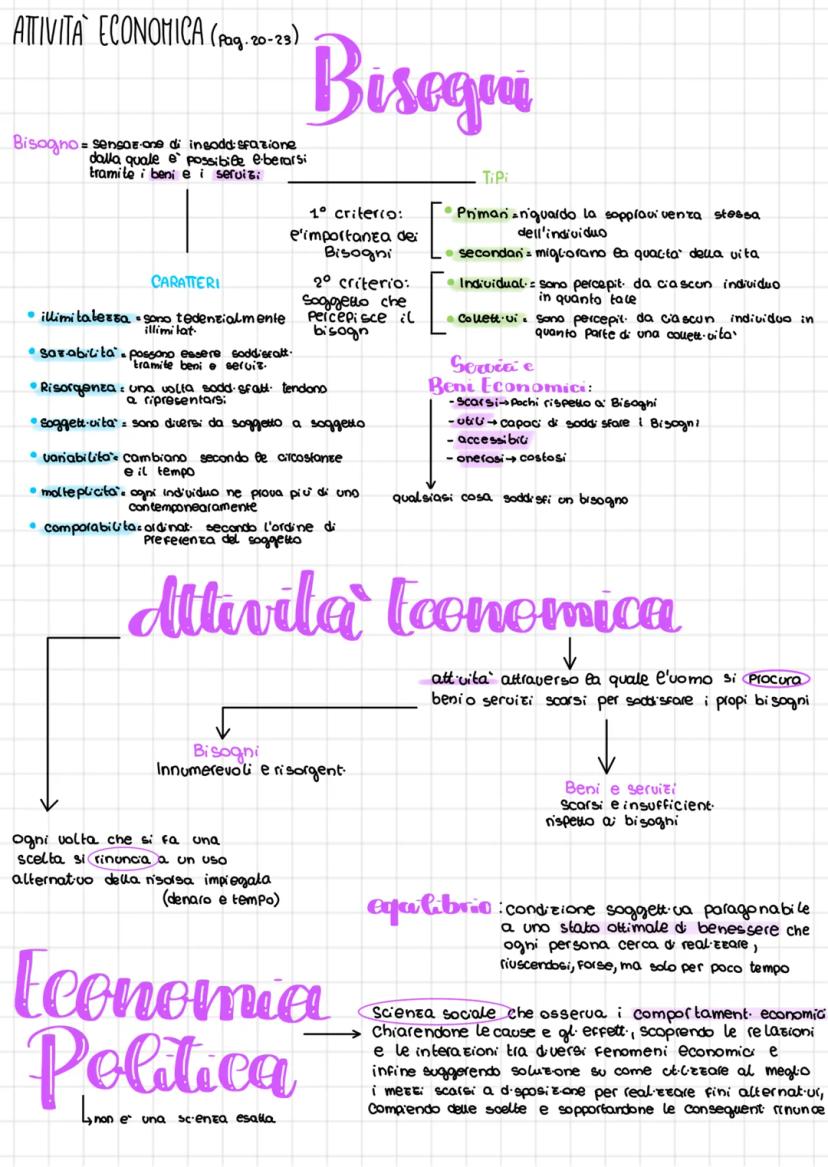 ATTIVITA' ECONOMICA (Pag. 20-23)
Bisogni
Bisogno = sensazione di insoddisfazione
dalla quale e' possibile liberarsi
tramite i beni e i servizi
TiPi
1° criterio:
l'importanza dei
Bisogni
• Primari = riguardo la sopravvivenza stessa
dell'individuo
• secondari = migliorano la qualita' della vita
2° criterio:
Soggetto che
Percepisce il
bisogn
• Individuali = sono percepiti da ciascun individuo
in quanto tale
• Collettivi = sono percepiti da ciascun individuo in
quanto parte di una collettivita'
CARATTERI
• illimitatezza = sono tedenzialmente
illimitati
• Saziabilita' = possono essere soddisfatti
tramite beni e servizi
• Risorgenza = una volta soddisfatti tendono
a ripresentarsi
• Soggettivita' = sono diversi da soggetto a soggetto
• variabilita' = cambiano secondo le circostanze
e il tempo
• molteplicita' = ogni individuo ne prova piu' di uno
contemporaneamente
• comparabilita = ordinati secondo l'ordine di
Preferenza del soggetto
Servizi e
Beni Economici:
- scarsi → Pochi rispetto ai Bisogni
- utili → capaci di soddisfare i Bisogni
- accessibili
- onerosi → costosi
qualsiasi cosa soddisfi un bisogno
Attivita' Economica
attivita' attraverso la quale l'uomo si procura
beni o servizi scarsi per soddisfare i propi bisogni
Bisogni
Innumerevoli e risorgenti
Beni e servizi
scarsi e insufficienti
rispetto ai bisogni
Ogni volta che si fa una
scelta si rinuncia a un uso
alternativo della risorsa impiegata
(denaro e tempo)
equilibrio : condizione soggettiva paragonabile
a uno stato ottimale di benessere che
ogni persona cerca di realizzare,
riuscendosi, forse, ma solo per poco tempo
Economia
Politica
non e' una scienza esatta
Scienza sociale che osserva i comportamenti economici
Chiarendone le cause e gli effetti, scoprendo le relazioni
e le interazioni tra diversi fenomeni economici e
infine suggerendo soluzione su come utilizzare al meglio
i mezzi scarsi a disposizione per realizzare fini alternativi,
Compiendo delle scelte e sopportandone le conseguenti rinunce